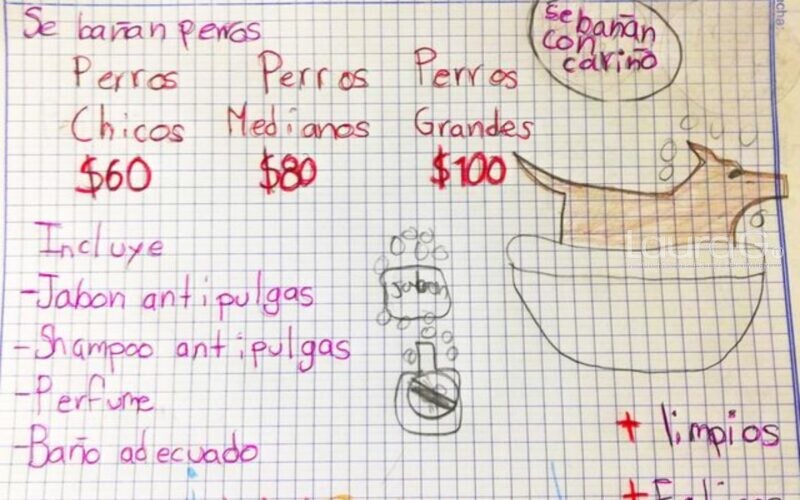 Se bañan perros
se bañan
con
cariño
Perros Perros Perros
Chicos Medianos Grandes
$60 $80 $100
Incluye
-Jabon antipulgas
-Shampoo antipulgas
-Perfume
-Baño adecuado
Jabon
+ limpios